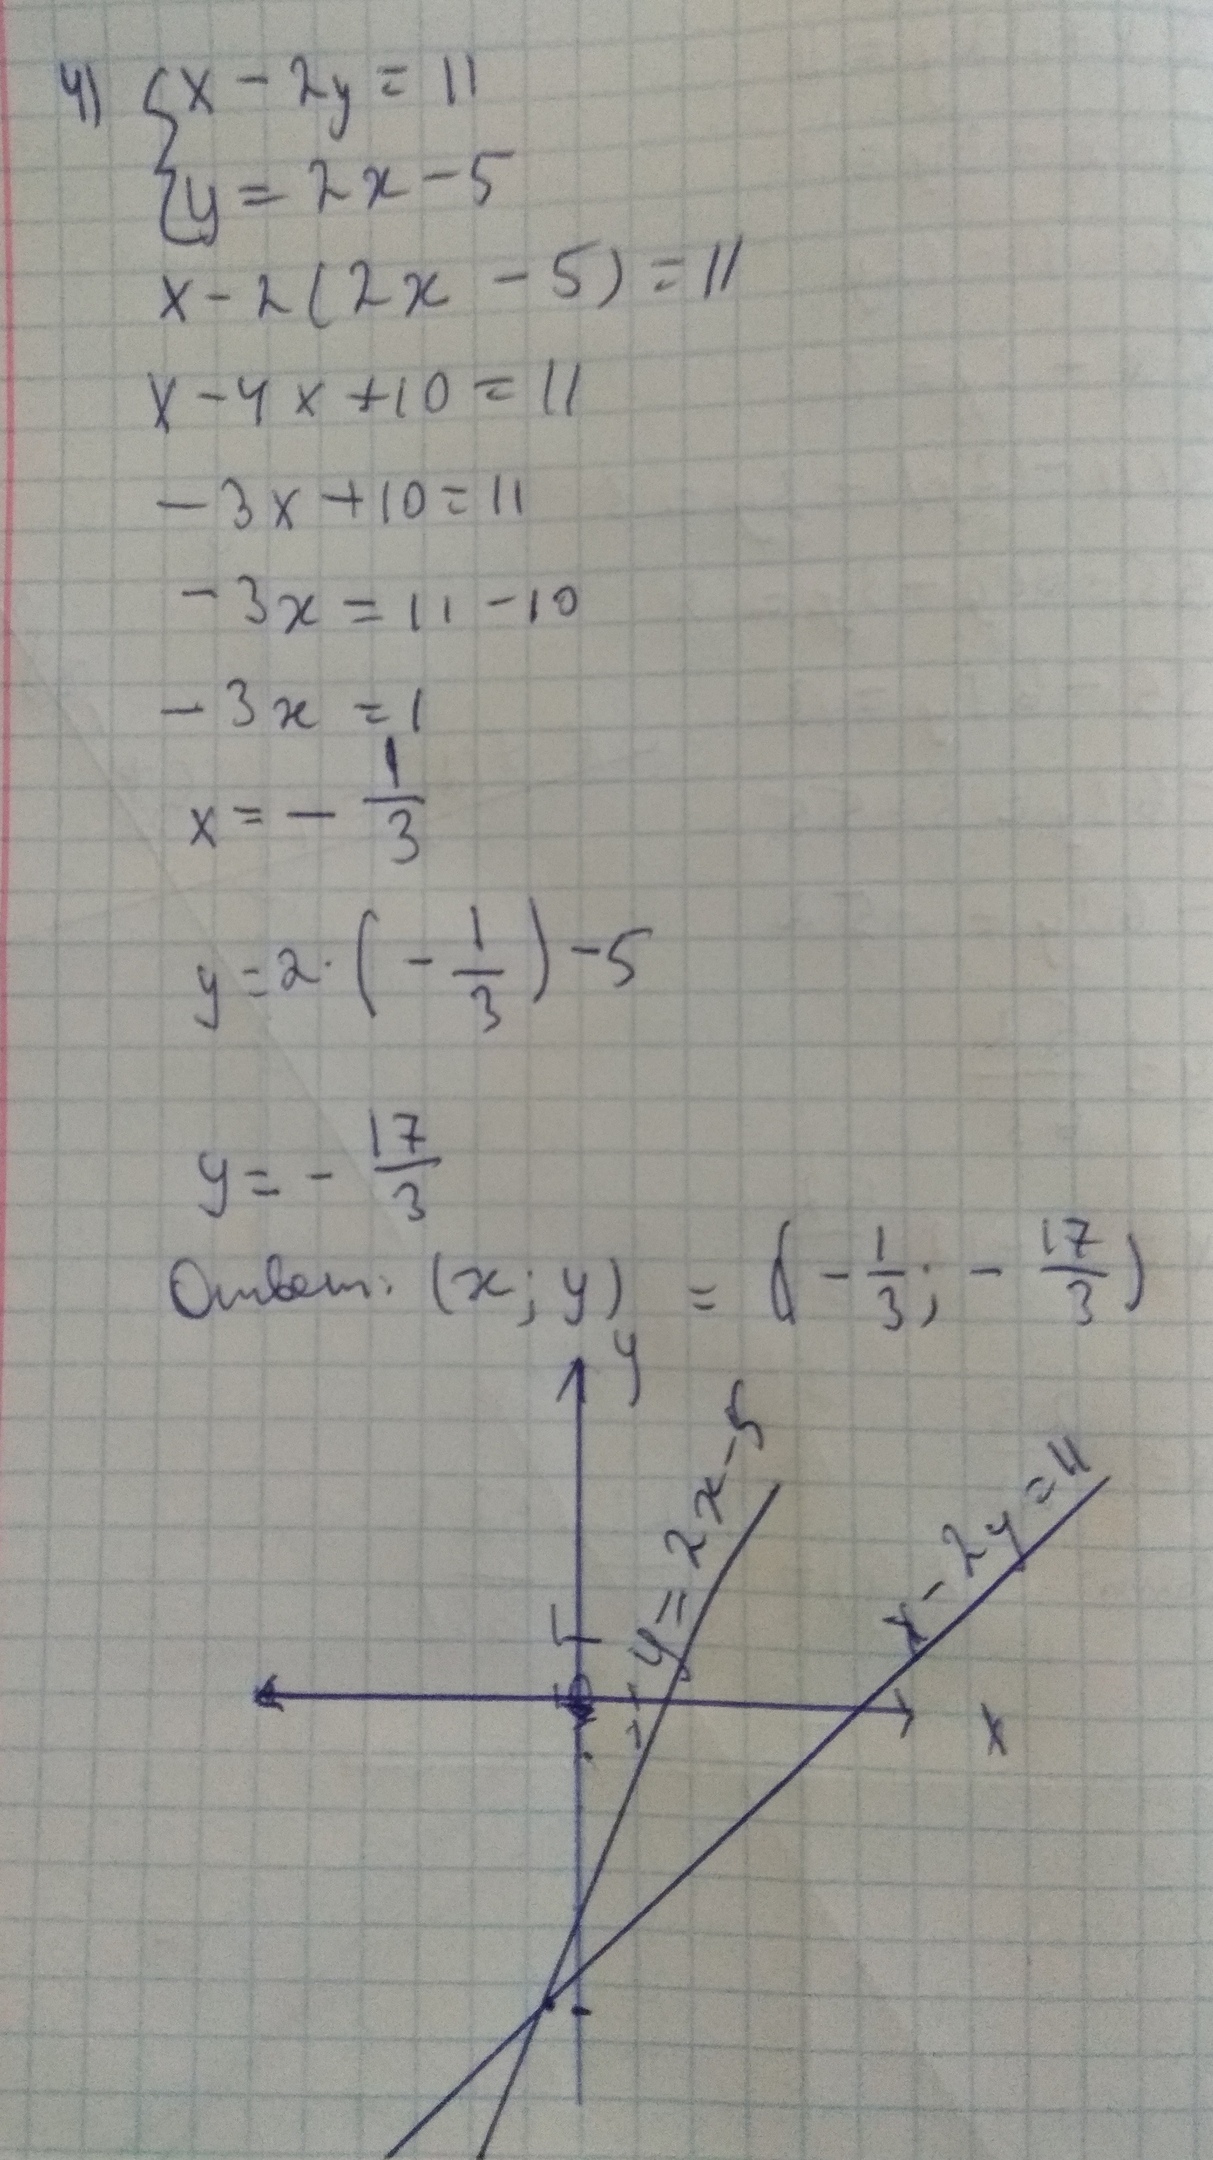 4) { x - 2y = 11
{ y = 2x - 5
x - 2(2x - 5) = 11
x - 4x + 10 = 11
- 3x + 10 = 11
- 3x = 11 - 10
- 3x = 1
x = - 1/3
y = 2 · (- 1/3) - 5
y = - 17/3
Ответ: (x; y) = (- 1/3; - 17/3)
y
y = 2x - 5
x - 2y = 11
x